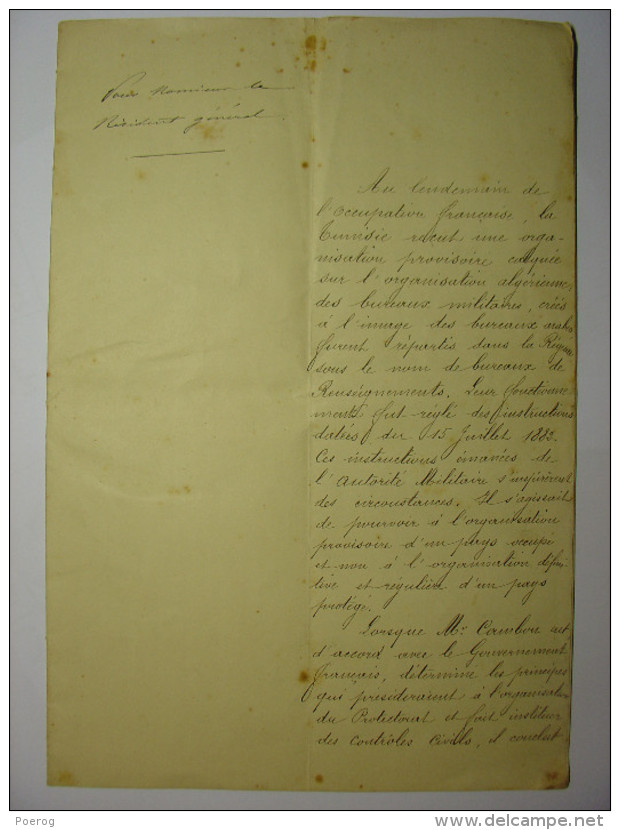 Pour Monsieur le
Résident général
Au lendemain de
l'occupation française, la
Tunisie reçut une orga-
nisation provisoire calquée
sur l'organisation algérienne,
des bureaux militaires, créés
à l'image des bureaux arabes
furent répartis dans la Régence
sous le nom de bureaux de
Renseignements. Leur fonctionne-
ment fut réglé des instructions
datées du 15 Juillet 1883.
Ces instructions émanées de
l'Autorité Militaire s'inspirèrent
des circonstances. Il s'agissait
de pourvoir à l'organisation
provisoire d'un pays occupé
et non à l'organisation défini-
tive et régulière d'un pays
protégé.
Lorsque Mr. Cambon eut
d'accord avec le Gouvernement
français, déterminé les principes
qui présideraient à l'organisation
du Protectorat et fait instituer
des contrôles civils, il conclut
Poerog
www.delcampe.net